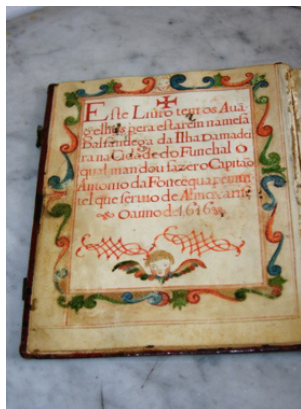 Este Liuro tem os Auã
gelhos pera estarem na mesa
Dalfandega da Ilha Damadei
ra na Cidade do Funchal O
qual mandou fazer o Capitão
Antonio da Fonceq
tel que seruio de Almoxarife
O anno de 1616